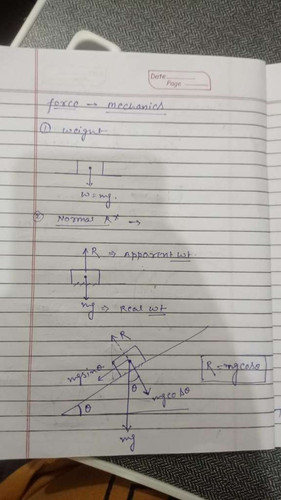 Date
Page
force → mechanics
① weight
W = mg.
② Normal Rˣ →
R ⇒ Apparent wt
mg ⇒ Real wt
R
mgsinθ
θ
R = mgcosθ
mgcosθ
θ
mg